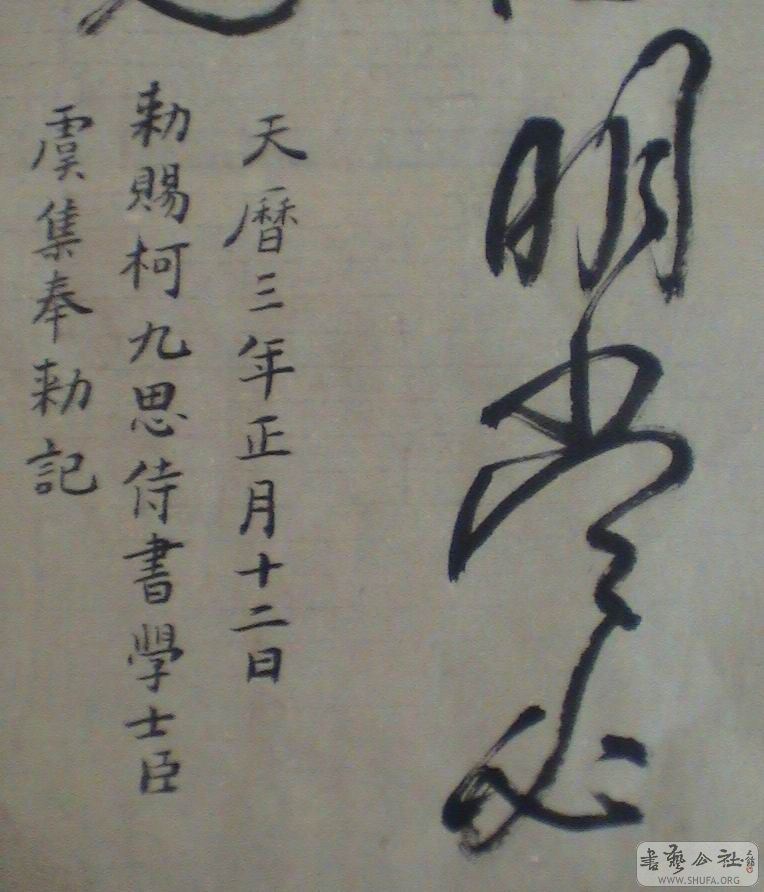 明當必
天曆三年正月十二日
勑賜柯九思侍書學士臣
虞集奉勑記
書藝公社
WWW.SHUFA.ORG